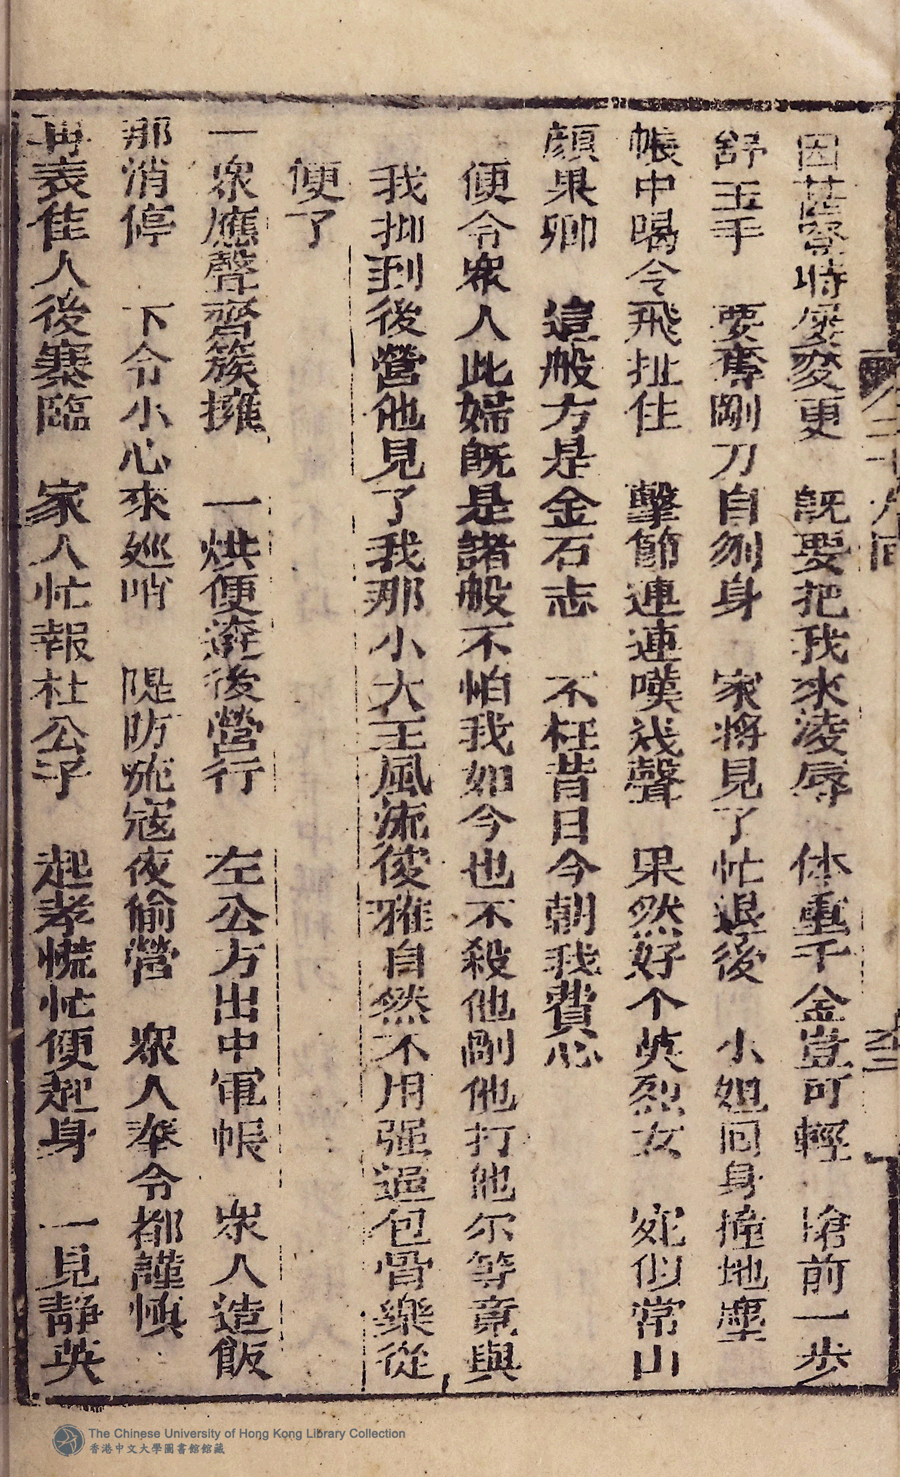 因甚登時屢変更　既要把我來淩辱　体重千金豈可輕　搶前一步
舒玉手　要奪剛刀自刎身　家將見了忙退後　小姐回身撞地塵
帳中喝令飛扯住　擊節連連嘆幾聲　果然好个英烈女　宛似常山
顔果卿　這般方是金石志　不枉昔日今朝我費心
便令衆人此婦既是諸般不怕我如今也不殺他剮他打他尔等竟與
我抑到後營他見了我那小大王風流俊雅自然不用强逼包骨樂從
便了
一衆應聲齊簇擁　一烘便遶後營行　左公方出中軍帳　衆人造飯
那消停　下令小心來廵哨　隄防流寇夜偷營　衆人奉令都謹慎
再表佳人後寨臨　家人忙報杜公子　起孝慌忙便起身　一見靜英
二十八回
The Chinese University of Hong Kong Library Collection
香港中文大學圖書館館藏